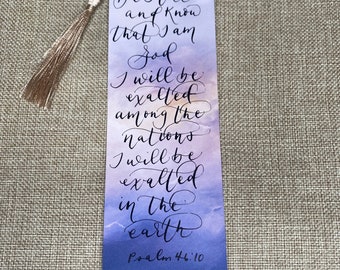 Be still
and know
that I am
God
I will be
exalted
among the
nations
I will be
exalted
in the
earth
Psalm 46:10